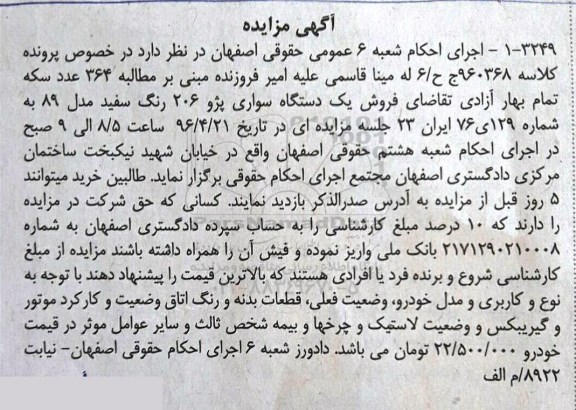 آگهی مزایده
۱-۳۲۴۹ - اجرای احکام شعبه ۶ عمومی حقوقی اصفهان در نظر دارد در خصوص پرونده
کلاسه ۹۶۰۳۶۸ج ح/۶ له مینا قاسمی علیه امیر فروزنده مبنی بر مطالبه ۳۶۴ عدد سکه
تمام بهار آزادی تقاضای فروش یک دستگاه سواری پژو ۲۰۶ رنگ سفید مدل ۸۹ به
شماره ۱۲۹ی۷۶ ایران ۲۳ جلسه مزایده ای در تاریخ ۹۶/۴/۲۱ ساعت ۸/۵ الی ۹ صبح
در اجرای احکام شعبه هشتم حقوقی اصفهان واقع در خیابان شهید نیکبخت ساختمان
مرکزی دادگستری اصفهان مجتمع اجرای احکام حقوقی برگزار نماید. طالبین خرید میتوانند
۵ روز قبل از مزایده به آدرس صدرالذکر بازدید نمایند. کسانی که حق شرکت در مزایده
را دارند که ۱۰ درصد مبلغ کارشناسی را به حساب سپرده دادگستری اصفهان به شماره
۲۱۷۱۲۹۰۲۱۰۰۰۸ بانک ملی واریز نموده و فیش آن را همراه داشته باشند مزایده از مبلغ
کارشناسی شروع و برنده فرد یا افرادی هستند که بالاترین قیمت را پیشنهاد دهند با توجه به
نوع و کاربری و مدل خودرو، وضعیت فعلی، قطعات بدنه و رنگ اتاق وضعیت و کارکرد موتور
و گیربکس و وضعیت لاستیک و چرخها و بیمه شخص ثالث و سایر عوامل موثر در قیمت
خودرو ۲۲/۵۰۰/۰۰۰ تومان می باشد. دادورز شعبه ۶ اجرای احکام حقوقی اصفهان- نیابت
۸۹۲۲/م الف